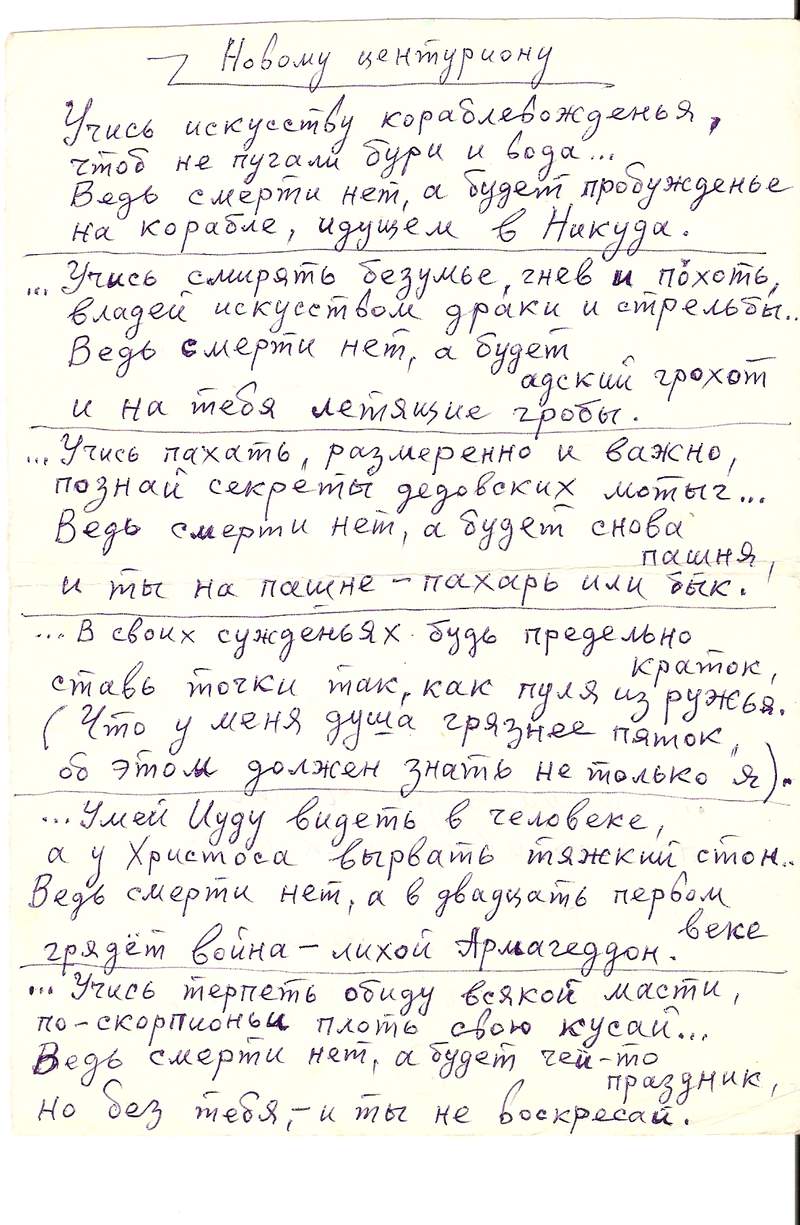 Новому центуриону
Учись искусству кораблевожденья,
чтоб не пугали бури и вода...
Ведь смерти нет, а будет пробужденье
на корабле, идущем в Никуда.
... Учись смирять безумье, гнев и похоть,
владей искусством драки и стрельбы...
Ведь смерти нет, а будет
адский грохот
и на тебя летящие гробы.
... Учись пахать, размеренно и важно,
познай секреты дедовских мотыг...
Ведь смерти нет, а будет снова
пашня,
и ты на пашне – пахарь или бык.
... В своих сужденьях будь предельно
краток,
ставь точки так, как пуля из ружья.
(Что у меня душа грязнее пяток,
об этом должен знать не только я).
... Умей Иуду видеть в человеке,
а у Христоса вырвать тяжкий стон...
Ведь смерти нет, а в двадцать первом
веке
грядёт война – лихой Армагеддон.
... Учись терпеть обиду всякой масти,
по-скорпионьи плоть свою кусай...
Ведь смерти нет, а будет чей-то
праздник,
но без тебя, – и ты не воскресай.